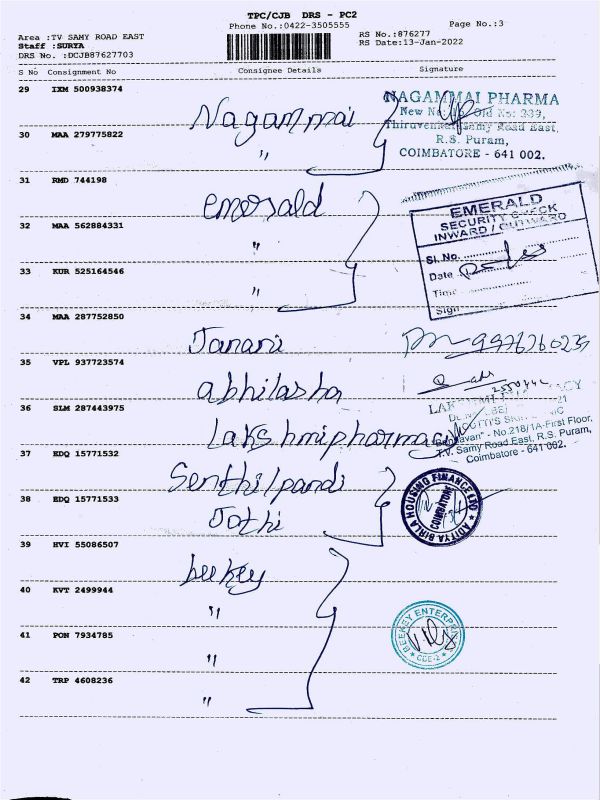 TPC/CJB DRS - PC2
Phone No.:0422-3505555
Page No.:3
Area :TV SAMY ROAD EAST
RS No.:876277
Staff :SURYA
RS Date:13-Jan-2022
DRS No. :DCJB87627703
S No Consignment No Consignee Details Signature
29 IXM 500938374
Nagammai
NAGAMMAI PHARMA
New No: Old No: 339,
Thiruvenkatasamy Road East,
R.S. Puram,
COIMBATORE - 641 002.
30 MAA 279775822
"
31 RMD 744198
emerald
32 MAA 562884331
"
EMERALD
SECURITY CHECK
INWARD / OUTWARD
Sl. No.
Date
Time
Sign
33 KUR 525164546
"
34 MAA 287752850
Janani
35 VPL 937723574
abhilasha
36 SLM 287443975
Lakshmipharmacy
No.21B/1A-First Floor,
T.V. Samy Road East, R.S. Puram,
Coimbatore - 641 002.
37 EDQ 15771532
Senthilpandi
38 EDQ 15771533
Jothi
ADITYA BIRLA HOUSING FINANCE LTD
COIMBATORE
39 HVI 55086507
beekey
40 KVT 2499944
"
BEEKEY ENTERPRISES
CBE-2
41 PON 7934785
"
42 TRP 4608236
"